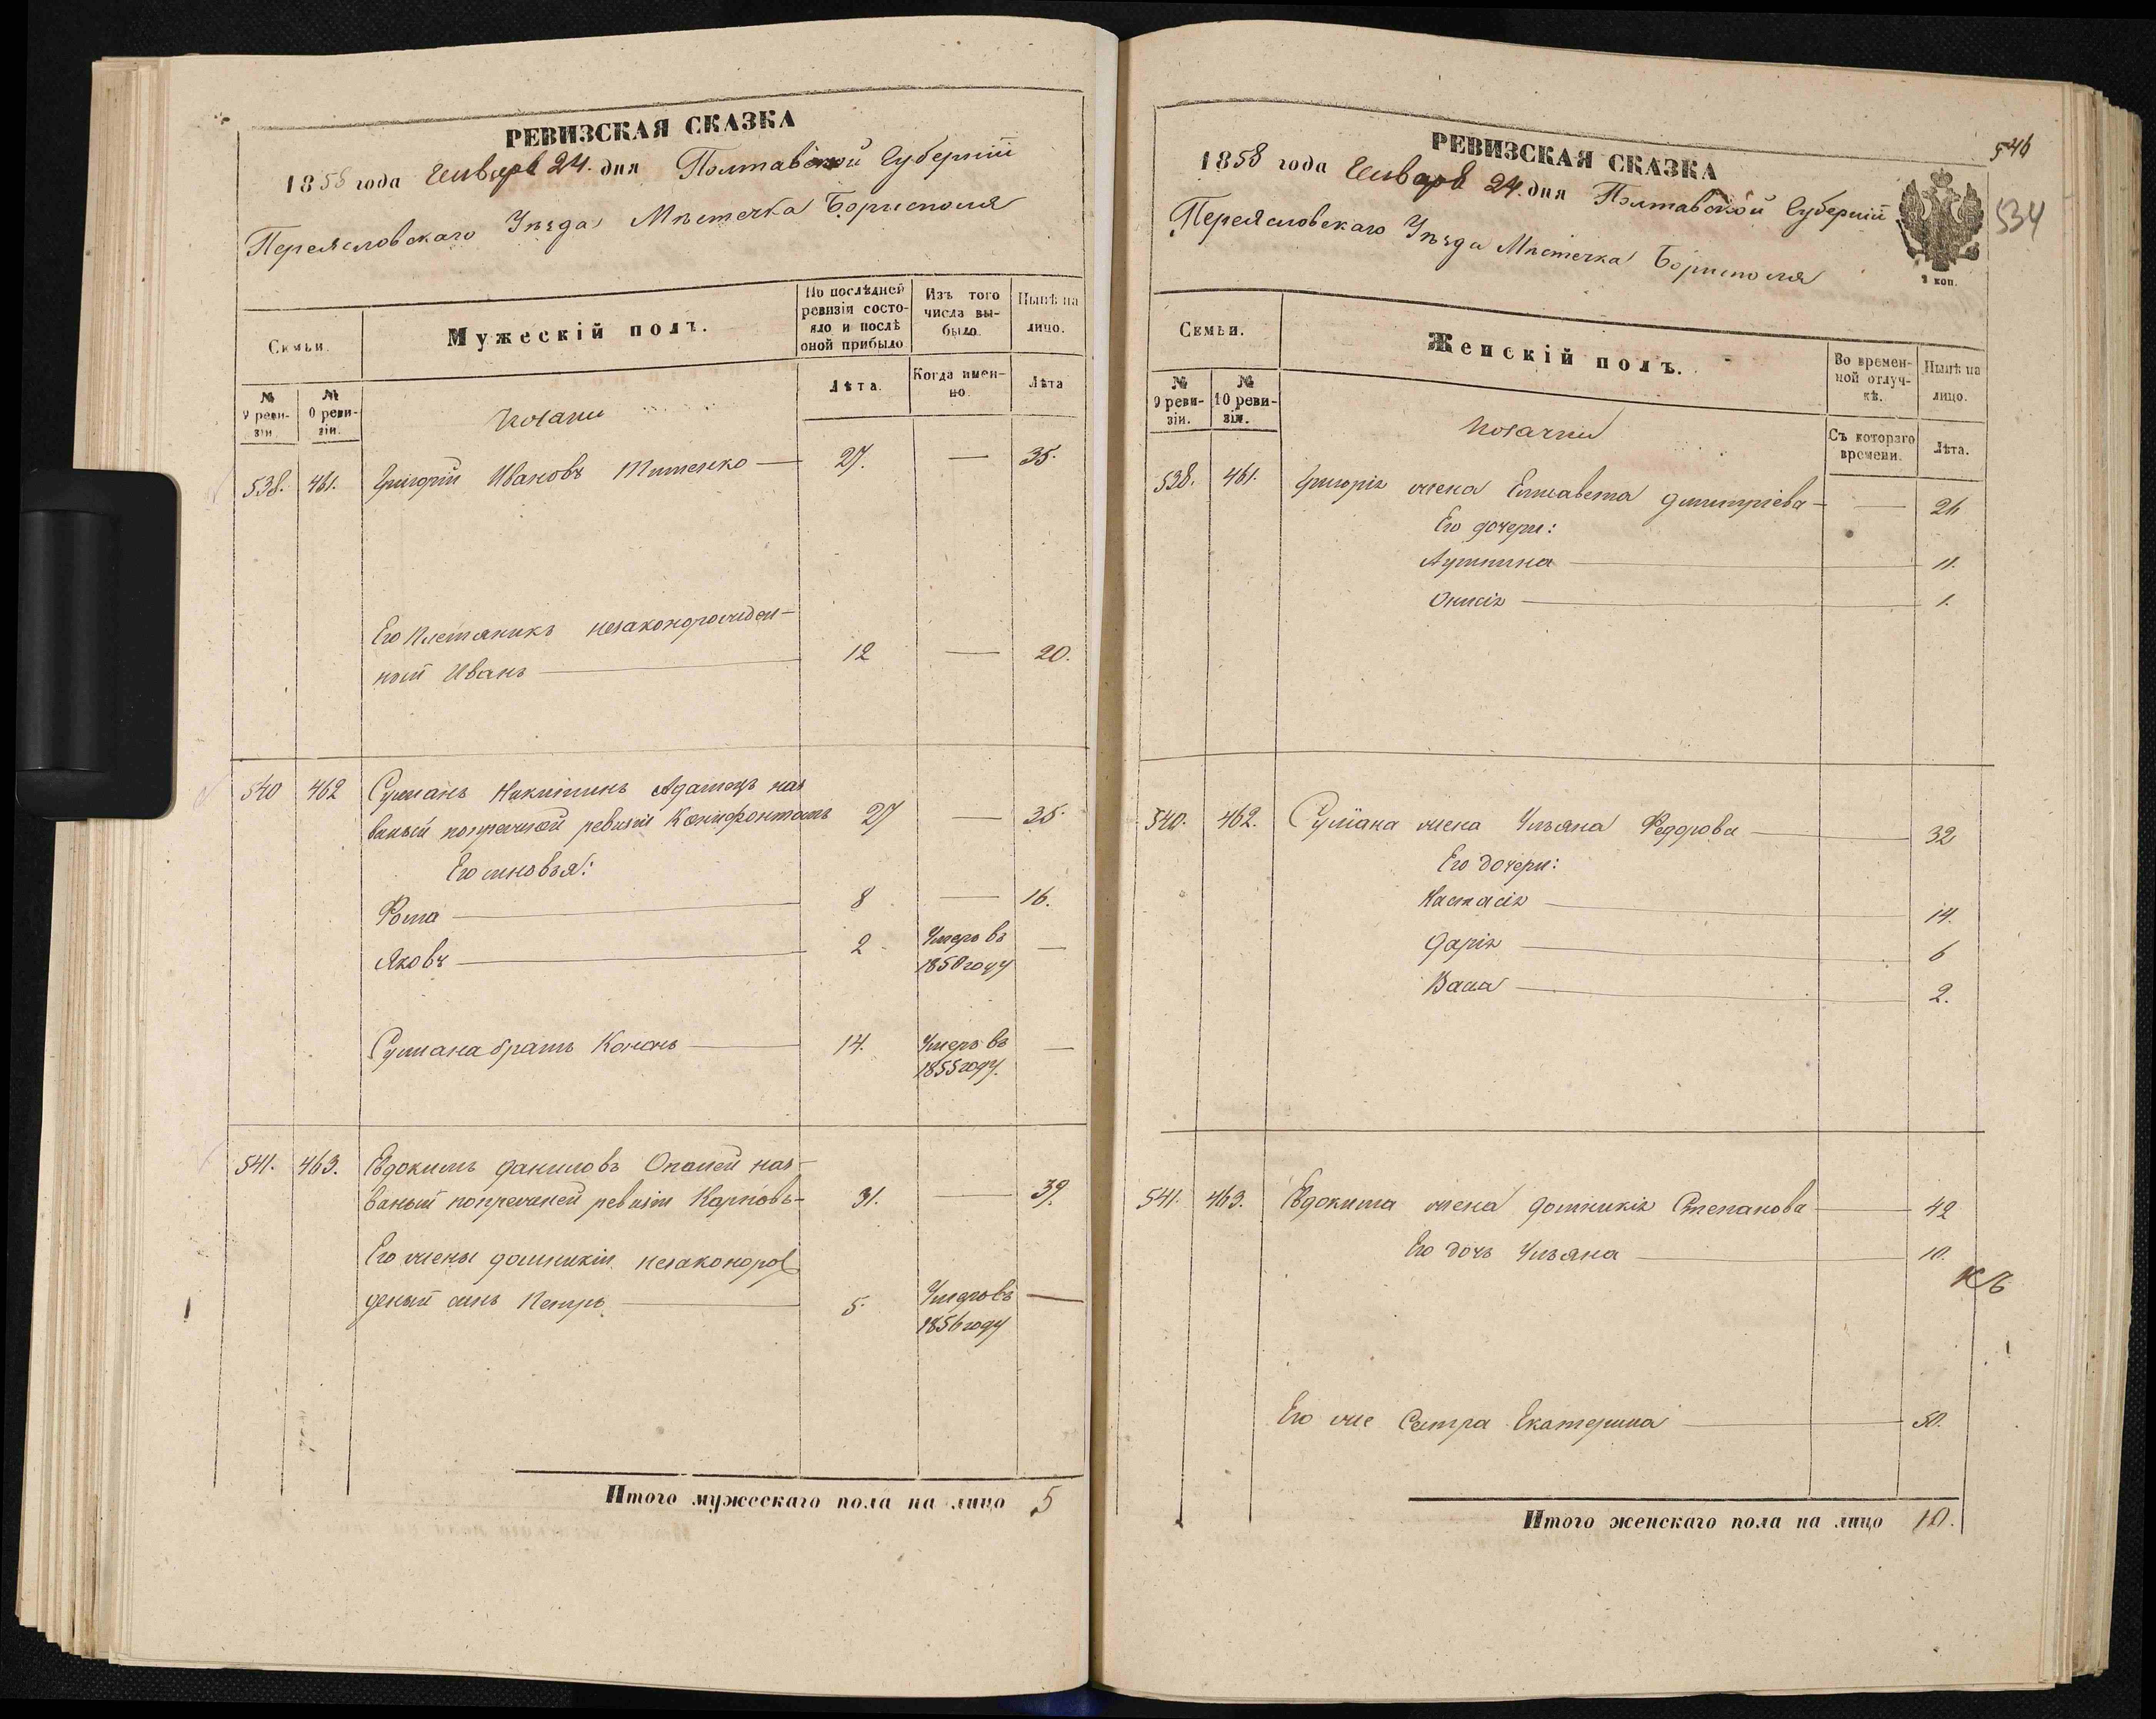 РЕВИЗСКАЯ СКАЗКА
1858 года Генваря 24. дня Полтавской Губерніи
Переясловскаго Уѣзда Мѣстечка Борисполя
Семьи.
Мужескій полъ.
По послѣдней ревизіи состояло и послѣ оной прибыло
Изъ того числа выбыло.
Нынѣ на лицо.
№ 9 ревизіи.
№ 10 ревизіи.
Козаки
Лѣта.
Когда именно.
Лѣта
538. 461. Григорій Ивановъ Титенко — 27. — 35.
Его племяникъ незаконорожден-
ный Иванъ — 12 — 20.
540 462 Сулианъ Никитинъ Адамецъ наз
ваный попрежней ревизіи Ксинофонтомъ 27 — 35.
Его сыновья:
Фома — 8 — 16.
Яковъ — 2 Умеръ въ 1850 году —
Сулиана братъ Кононъ — 14. Умеръ въ 1855 году. —
541. 463. Евдокимъ Даниловъ Опалей наз-
ваный попрежней ревизіи Карповъ- 31. — 39.
Его жены Домникіи незаконорож
деный сынъ Петръ — 5. Умеръ въ 1856 году —
Итого мужескаго пола на лицо 5
РЕВИЗСКАЯ СКАЗКА
546
534
1858 года Генваря 24. дня Полтавской Губерніи
Переясловскаго Уѣзда Мѣстечка Борисполя
2 коп.
Семьи.
Женскій полъ.
Во временной отлучкѣ.
Нынѣ на лицо.
№ 9 ревизіи.
№ 10 ревизіи.
Козачки
Съ котораго времени.
Лѣта.
538. 461. Григорія жена Елисавета Дмитріева — — 26
Его дочери:
— 11.
Онисія — 1.
540. 462. Сулиана жена Ульяна Федорова — 32
Его дочери:
Настасія — 14.
Дарія — 6
Васса — 2.
541. 463. Евдокима жена Домникія Степанова — 42
Его дочь Ульяна — 10.
Его же Сестра Екатерина — 50.
Итого женскаго пола на лицо 10.